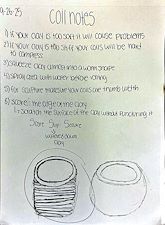 9-26-25
Coil notes
1) if your clay is too soft it will cause problems
2) if your clay is too stiff your coils will be hard
to compress
3) squeeze clay almost into a worm shape
4) spray area with water before joining
5) for sculpture make sure your coils are thumb width
6) score the edge of the clay
scratch the surface of the clay without puncturing it
Score Slip Secure
watered down
clay